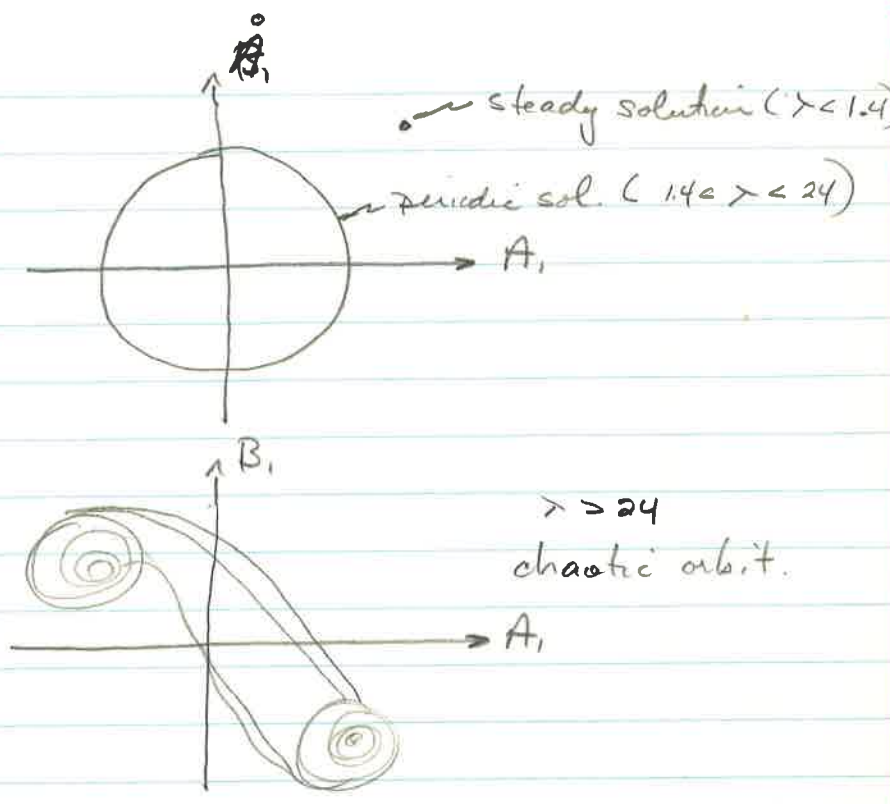 steady solution (λ<1.4)
periodic sol. ( 1.4< λ < 24)
A₁
B₁
λ > 24
chaotic orbit.
A₁